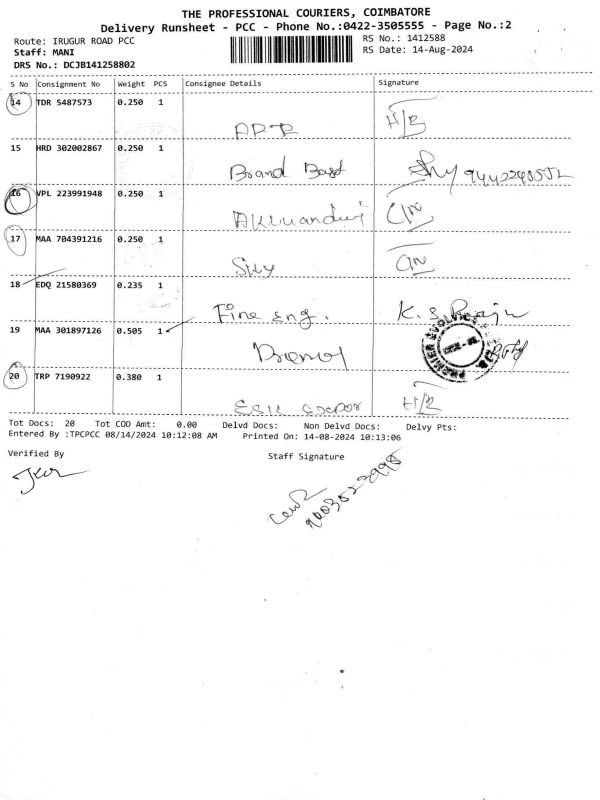 THE PROFESSIONAL COURIERS, COIMBATORE
Delivery Runsheet - PCC - Phone No.:0422-3505555 - Page No.:2
Route: IRUGUR ROAD PCC RS No.: 1412588
Staff: MANI RS Date: 14-Aug-2024
DRS No.: DCJB141258802
S No Consignment No Weight PCS Consignee Details Signature
14 TDR 5487573 0.250 1
H/R
15 HRD 302002867 0.250 1
Brand
16 VPL 223991948 0.250 1
17 MAA 704391216 0.250 1
Sky
18 EDQ 21580369 0.235 1
Fine eng. K. S.
19 MAA 301897126 0.505 1
PREMIER
20 TRP 7190922 0.380 1
H/R
Tot Docs: 20 Tot COD Amt: 0.00 Delvd Docs: Non Delvd Docs: Delvy Pts:
Entered By :TPCPCC 08/14/2024 10:12:08 AM Printed On: 14-08-2024 10:13:06
Verified By Staff Signature